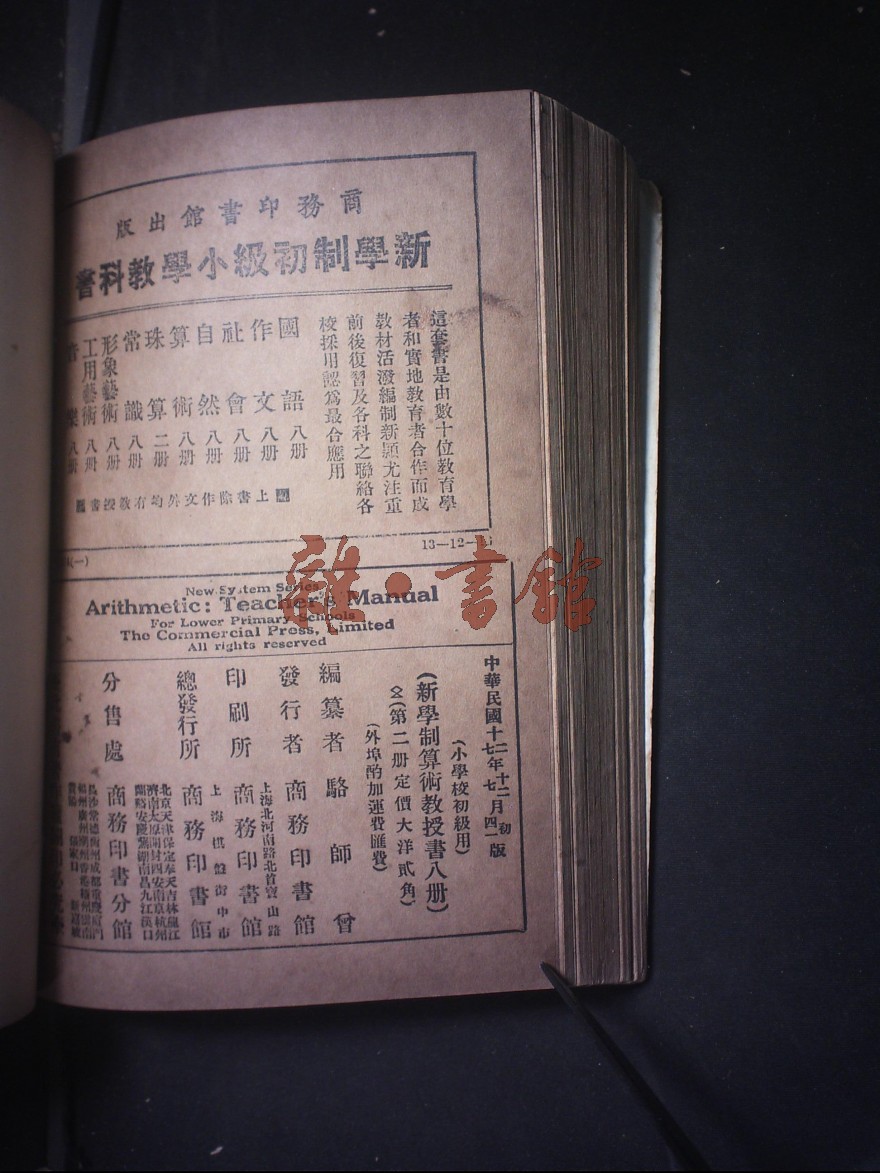 商務印書館出版
新學制初級小學教科書
這套書是由數十位教育學
者和實地教育者合作而成
教材活潑編制新穎尤注重
前後復習及各科之聯絡各
校採用認爲最合應用
國語 八册
作文 八册
社會 八册
自然 八册
算術 八册
珠算 二册
常識 八册
形象藝術 八册
工用藝術 八册
音樂 八册
上書除作文外均有教授書
(一)
13—12—
New System Series
Arithmetic: Teacher's Manual
For Lower Primary Schools
The Commercial Press, Limited
All rights reserved
中華民國十二年十二月初版
(小學校初級用)
(新學制算術教授書八册)
(第二册定價大洋貳角)
(外埠酌加運費匯費)
編纂者 駱師曾
發行者 商務印書館
上海北河南路北首寶山路
印刷所 商務印書館
上海棋盤街中市
總發行所 商務印書館
北京天津保定奉天吉林龍江
濟南太原開封西安南京杭州
蘭谿安慶蕪湖南昌九江漢口
分售處 商務印書分館
雜·書館